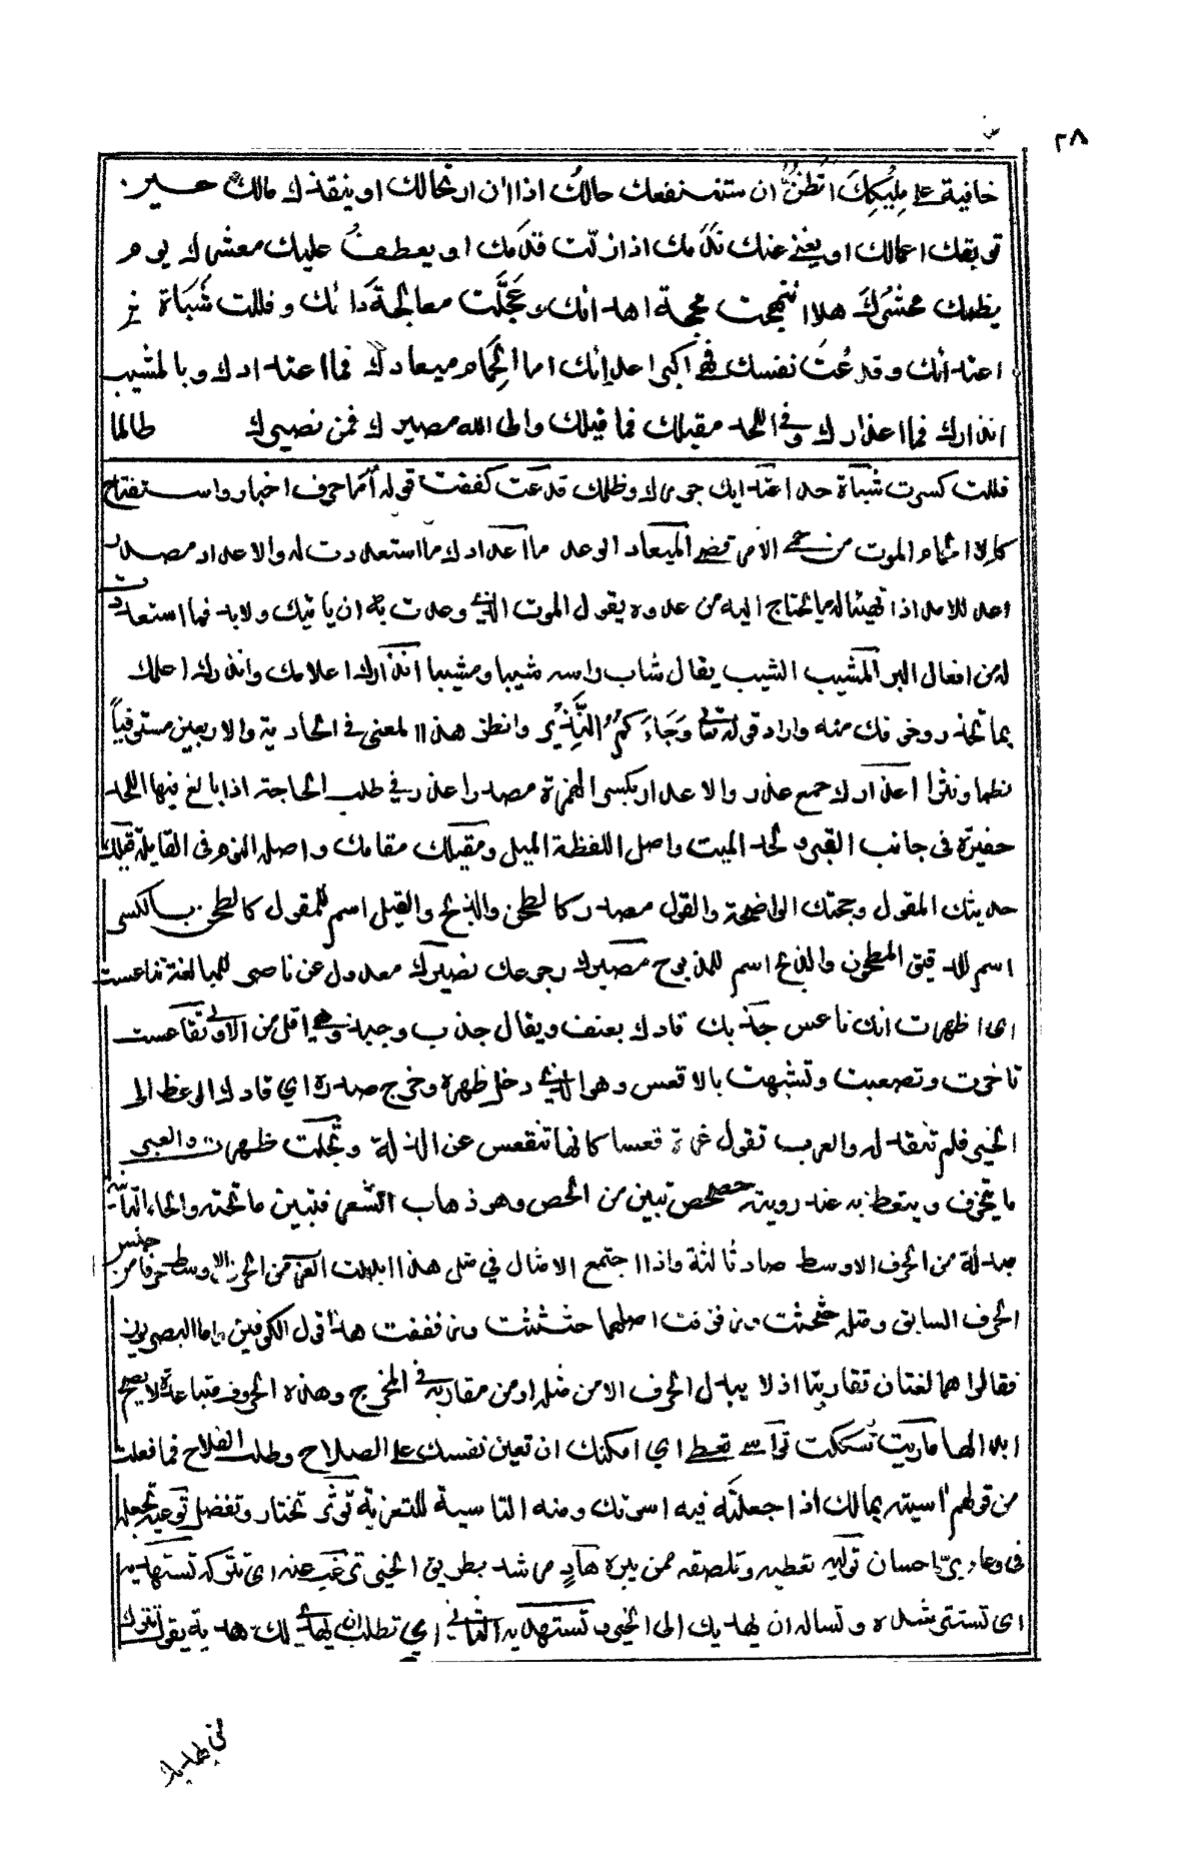 ٢٨
خافية على مليكك اتظن ان ستنفعك حالك اذا ان ارتحالك او ينقذك مالك حين
توبقك اعمالك او يغني عنك ندمك اذا زلت قدمك او يعطف عليك معشرك يوم
يضمك محشرك هلا انتهجت محجة اهتدائك وعجلت معالجة دائك وفللت شباة
اعتدائك وقدعت نفسك فهي اكبر اعدائك اما الحمام ميعادك فما اعدادك وبالمشيب
انذارك فما اعذارك وفي اللحد مقيلك فما قيلك والى الله مصيرك فمن نصيرك طالما
فللت كسرت شباة حد اعتدايك جورك وظلمك قدعت كففت قوله أما حرف اخبار واستفتاح
كالا الحمام الموت من حم الامر قضي الميعاد الوعد ما اعدادك ما استعددت له والاعداد مصدر
اعد للامر اذا تهيئا له بما يحتاج اليه من عدوه يقول الموت الذي وعدت به ان ياتيك ولابد فما استعددت
له من افعال البر المشيب الشيب يقال شاب راسه شيبا ومشيبا انذارك اعلامك وانذرك اعلمك
بما تحذر وخوفك منه واراد قوله تعالى وجاءكم النذير وانظر هذا المعنى في الحادية والاربعين مستوفياً
نظما ونثرا اعذارك جمع عذر والاعذار بكسر الهمزة مصدر اعذر في طلب الحاجة اذا بالغ فيها اللحد
حفيرة في جانب القبر ولحد الميت واصل اللفظة الميل ومقيلك مقامك واصله النوم في القايلة قيلك
حديثك المقول وحجتك الواضحة والقول مصدر كالطحن والذبح والقيل اسم للمقول كالطحن بالكسر
اسم للدقيق المطحون والذبح اسم للمذبوح مصيرك رجوعك نصيرك معدول عن ناصر للمبالغة تناعست
اي اظهرت انك ناعس جذبك قادك بعنف ويقال جذب وجبذ وهي اقل من الاولى تقاعست
تاخرت وتصعبت وتشبهت بالاقعس وهو الذي دخل ظهره وخرج صدره اي قادك الوعظ الى
الخير فلم تنقد له والعرب تقول عزة قعسا كانها تتقعس عن الذلة وتجلت ظهرت والعبر
ما يخوف ويتعظ به عند رويته حصحص تبين من الحص وهو ذهاب الشعر فتبين ما تحته والحاء الثانية
مبدلة من الحرف الاوسط صاد ثالثة واذا اجتمع الامثال في مثل هذا ابدلت العرب من الحرف الاوسط حرفا من جنس
الحرف السابق ومثله حثحثت ورقرقت اصلهما حثثت ورققت هذا قول الكوفيين واما البصريون
فقالوا هما لغتان تقاربتا اذ لا يبدل الحرف الا من مثله او من مقاربه في المخرج وهذه الحروف متباعدة لا يصح
ابدالها ماريت شككت تواسى تعطي اي امكنك ان تعين نفسك على الصلاح وطلب الفلاح فما فعلت
من قولهم آسيته بمالك اذا جعلته فيه اسوتك ومنه التاسية للتعزية توثر تختار وتفضل توعيه تجعله
في وعاء بر احسان توليه تعطيه وتلصقه ممن يبره هادٍ مرشد بطريق الخير ترغب عنه اي تتركه تستهديه
اي تسترشده وتساله ان يهديك الى الخير وتستهديه الثاني اي تطلب ان يهدي لك هدية يقول تترك